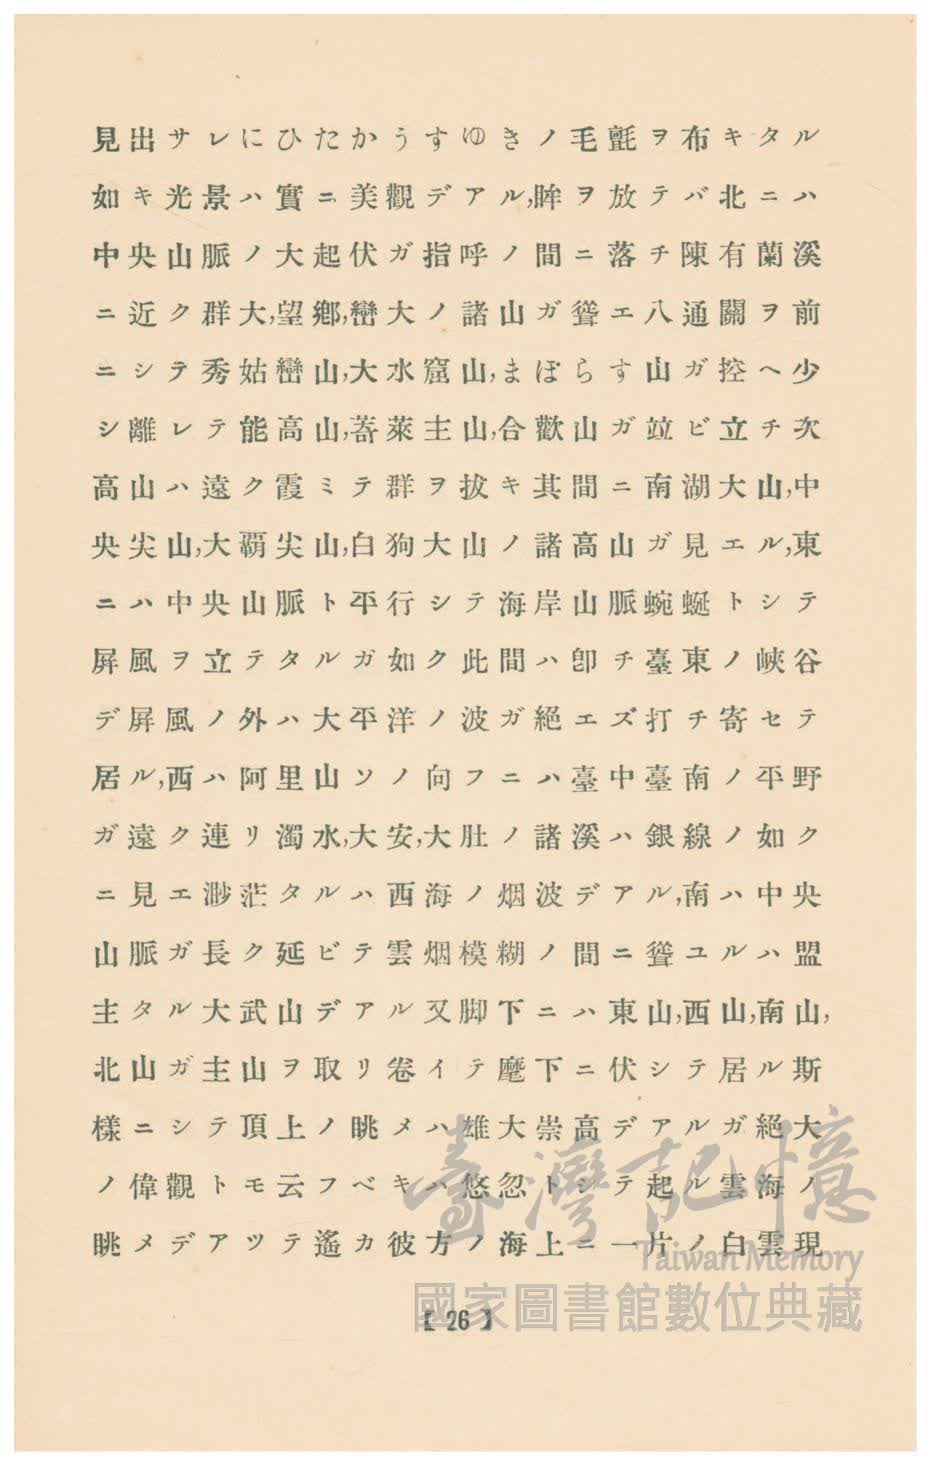 見出サレにひたかうすゆきノ毛氈ヲ布キタル
如キ光景ハ實ニ美觀デアル,眸ヲ放テバ北ニハ
中央山脈ノ大起伏ガ指呼ノ間ニ落チ陳有蘭溪
ニ近ク群大,望鄕,巒大ノ諸山ガ聳エ八通關ヲ前
ニシテ秀姑巒山,大水窟山,まぼらす山ガ控ヘ少
シ離レテ能高山,萕萊主山,合歡山ガ竝ビ立チ次
高山ハ遠ク霞ミテ群ヲ拔キ其間ニ南湖大山,中
央尖山,大覇尖山,白狗大山ノ諸高山ガ見エル,東
ニハ中央山脈ト平行シテ海岸山脈蜿蜒トシテ
屏風ヲ立テタルガ如ク此間ハ卽チ臺東ノ峽谷
デ屏風ノ外ハ大平洋ノ波ガ絕エズ打チ寄セテ
居ル,西ハ阿里山ソノ向フニハ臺中臺南ノ平野
ガ遠ク連リ濁水,大安,大肚ノ諸溪ハ銀線ノ如ク
ニ見エ渺茫タルハ西海ノ烟波デアル,南ハ中央
山脈ガ長ク延ビテ雲烟模糊ノ間ニ聳ユルハ盟
主タル大武山デアル又脚下ニハ東山,西山,南山,
北山ガ主山ヲ取リ卷イテ麾下ニ伏シテ居ル斯
樣ニシテ頂上ノ眺メハ雄大崇高デアルガ絕大
ノ偉觀トモ云フベキハ悠忽トシテ起ル雲海ノ
眺メデアツテ遙カ彼方ノ海上ニ一片ノ白雲現
【 26 】
臺灣記憶
Taiwan Memory
國家圖書館數位典藏